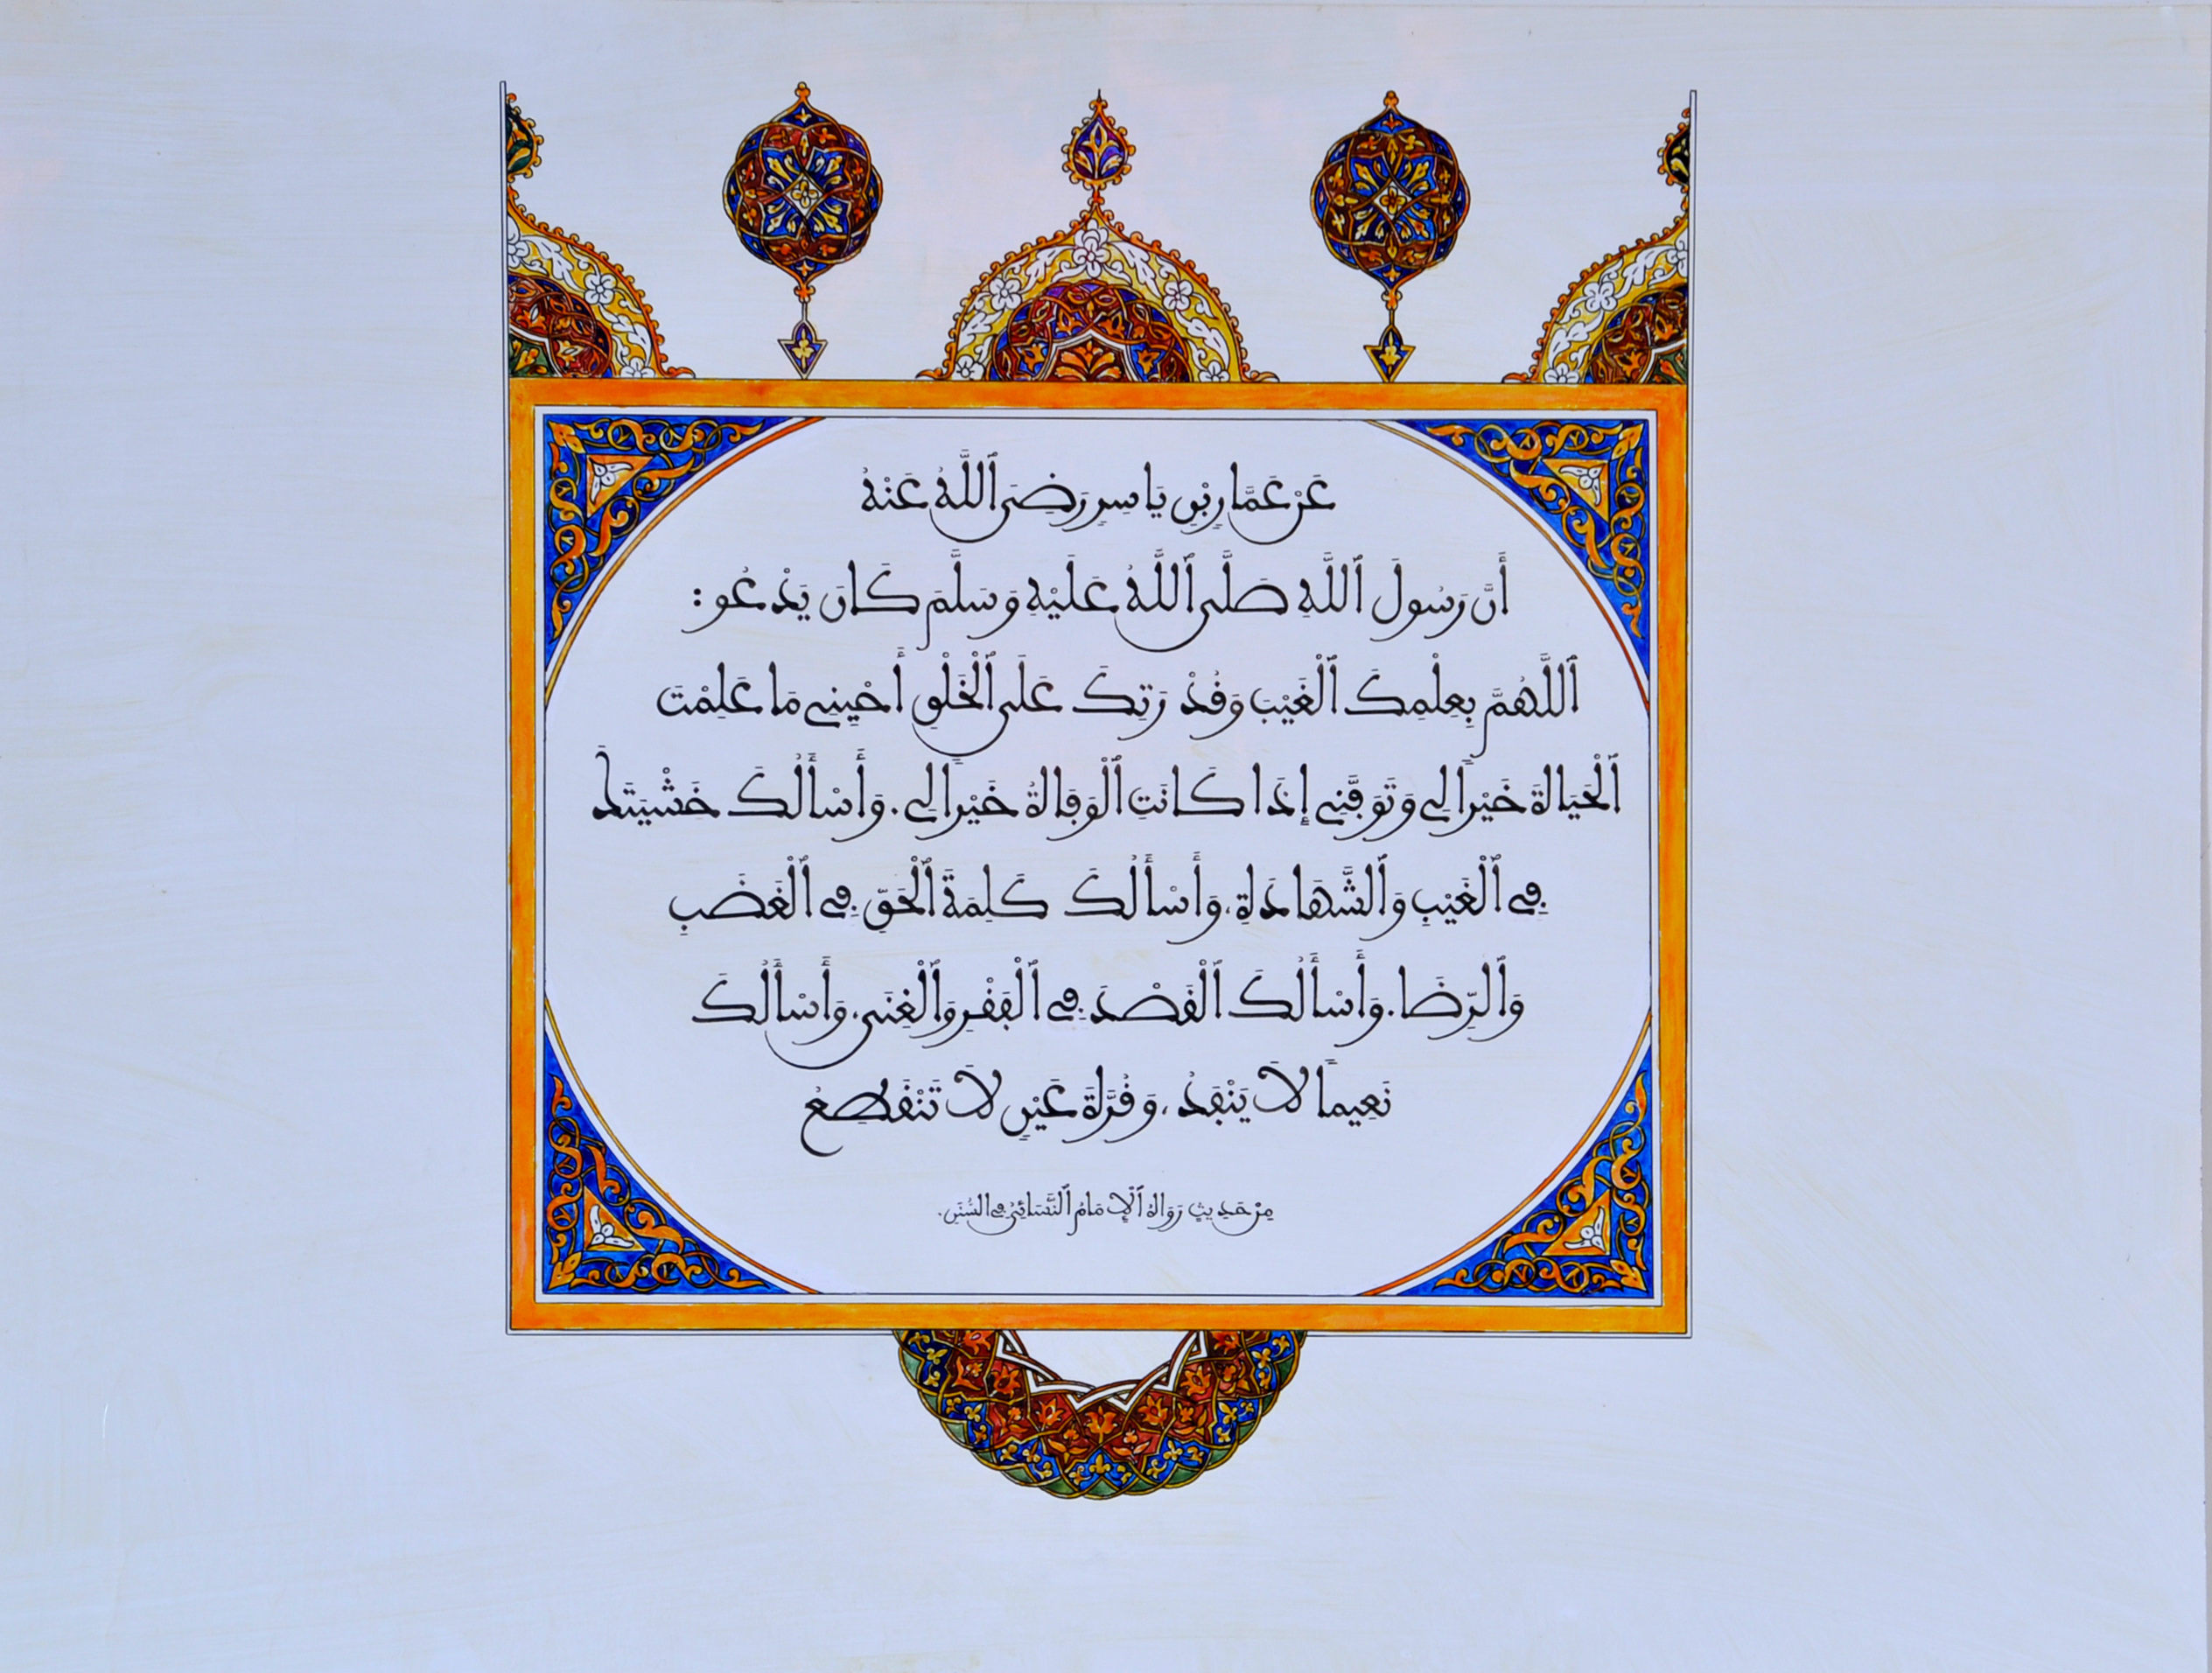 عَنْ عَمَّارِ بْنِ يَاسِرٍ رَضِيَ ٱللَّهُ عَنْهُ
أَنَّ رَسُولَ ٱللَّهِ صَلَّى ٱللَّهُ عَلَيْهِ وَسَلَّمَ كَانَ يَدْعُو :
ٱللَّهُمَّ بِعِلْمِكَ ٱلْغَيْبَ وَقُدْرَتِكَ عَلَى ٱلْخَلْقِ أَحْيِنِي مَا عَلِمْتَ
ٱلْحَيَاةَ خَيْراً لِي وَتَوَفَّنِي إِذَا كَانَتِ ٱلْوَفَاةُ خَيْراً لِي. وَأَسْأَلُكَ خَشْيَتَكَ
فِي ٱلْغَيْبِ وَٱلشَّهَادَةِ، وَأَسْأَلُكَ كَلِمَةَ ٱلْحَقِّ فِي ٱلْغَضَبِ
وَٱلرِّضَا. وَأَسْأَلُكَ ٱلْقَصْدَ فِي ٱلْفَقْرِ وَٱلْغِنَى، وَأَسْأَلُكَ
نَعِيماً لَا يَنْفَدُ، وَقُرَّةَ عَيْنٍ لَا تَنْقَطِعُ
مِنْ حَدِيثٍ رَوَاهُ ٱلْإِمَامُ ٱلنَّسَائِيُّ فِي السُّنَنِ.